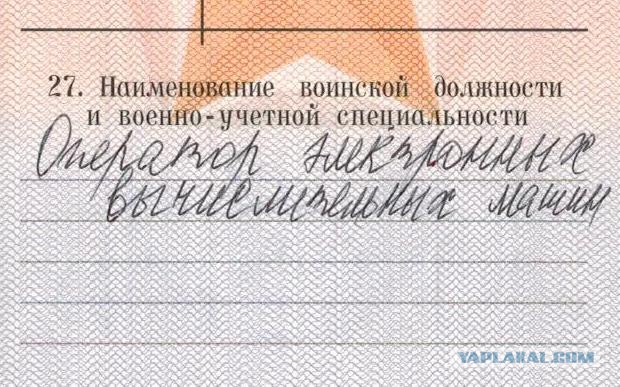 27. Наименование воинской должности
и военно-учетной специальности
Оператор электронных
вычислительных машин
YAPLAKAL.COM